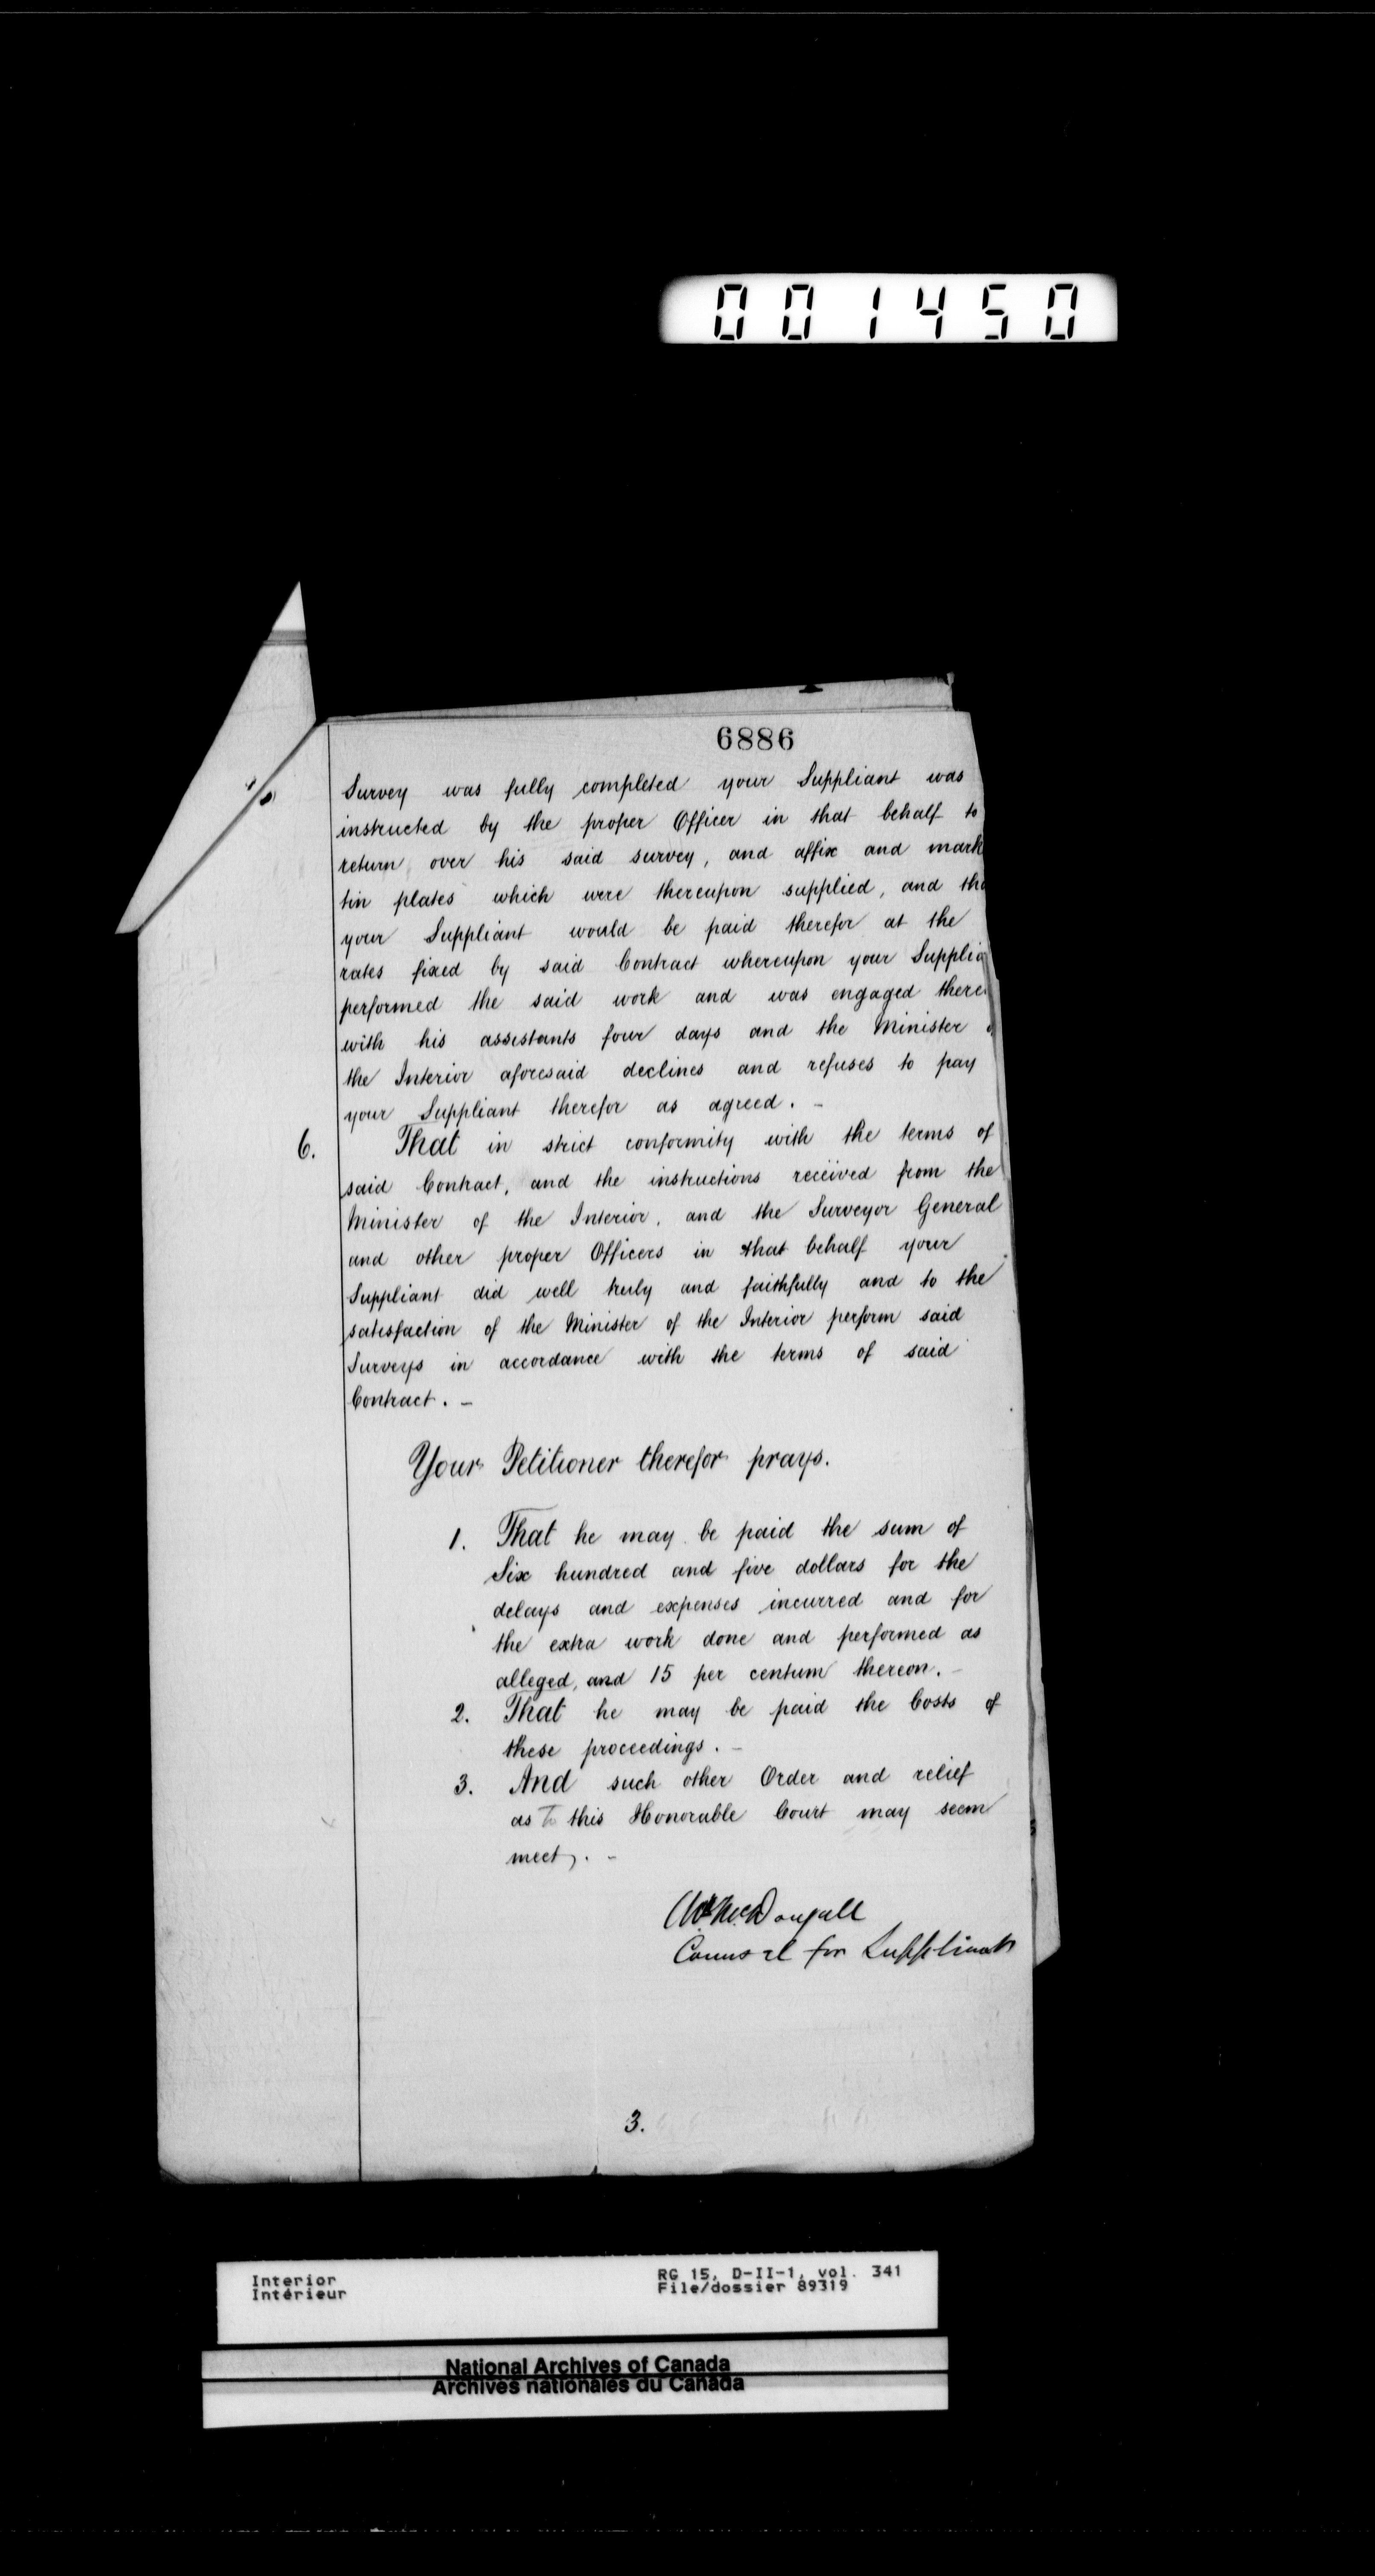 001450
6886
Survey was fully completed your Suppliant was
instructed by the proper Officer in that behalf to
return over his said survey, and affix and mark
tin plates which were thereupon supplied, and tha
your Suppliant would be paid therefor at the
rates fixed by said Contract whereupon your Supplia
performed the said work and was engaged there
with his assistants four days and the Minister
the Interior aforesaid declines and refuses to pay
your Suppliant therefor as agreed. -
6. That in strict conformity with the terms of
said Contract, and the instructions received from the
Minister of the Interior, and the Surveyor General
and other proper Officers in that behalf your
Suppliant did well truly and faithfully and to the
satisfaction of the Minister of the Interior perform said
Surveys in accordance with the terms of said
Contract. -
Your Petitioner therefor prays.
1. That he may be paid the sum of
Six hundred and five dollars for the
delays and expenses incurred and for
the extra work done and performed as
alleged, and 15 per centum thereon. -
2. That he may be paid the Costs of
these proceedings. -
3. And such other Order and relief
as to this Honorable Court may seem
meet. -
Wm McDougall
Counsel for Suppliant
3.
Interior RG 15, D-II-1, vol. 341
Intérieur File/dossier 89319
National Archives of Canada
Archives nationales du Canada